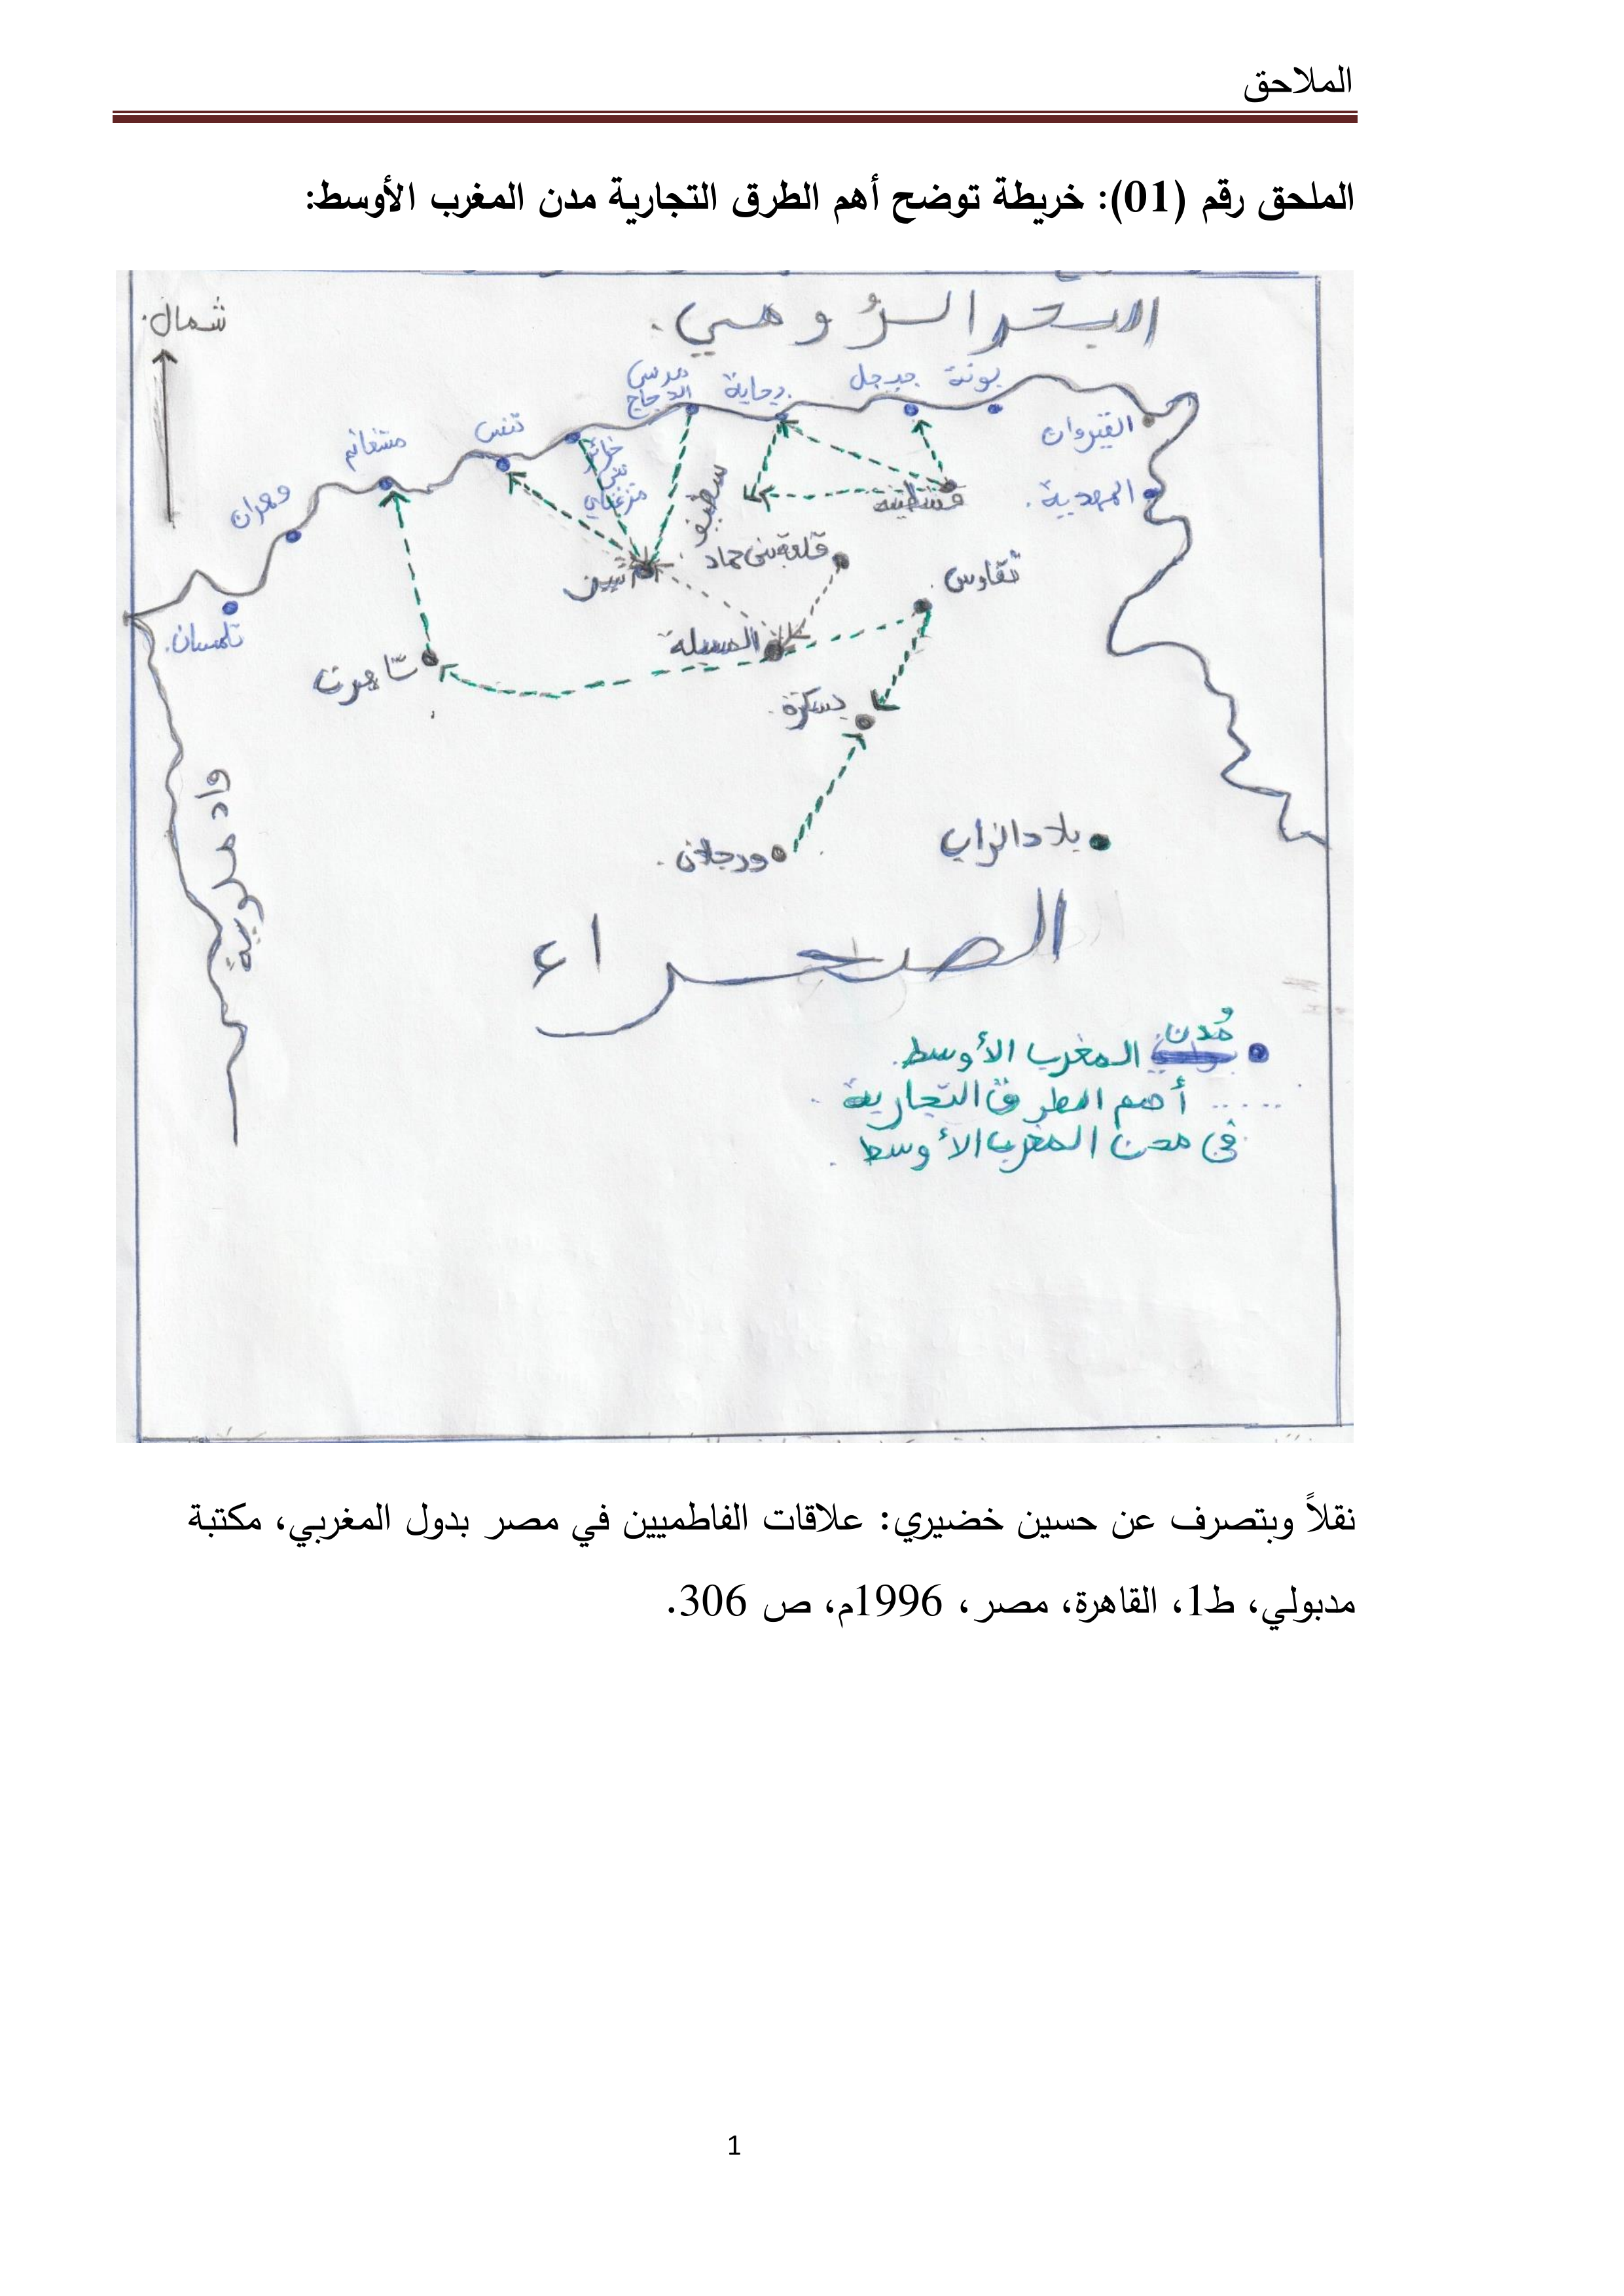 الملاحق
الملحق رقم (01): خريطة توضح أهم الطرق التجارية مدن المغرب الأوسط:
البحر الرومي.
شمال.
مرسى
الدجاج
بجاية
جيجل
بونة
القيروان
المهدية.
تنس
مستغانم
وهران
تلمسان.
جزائر
بني
مزغناي
سطيف
قسنطينة
قلعة بني حماد
نقاوس
أشير
المسيلة
تاهرت
بسكرة.
ورجلان.
بلاد الزاب
واد ملوية
الصحراء
مُدن المغرب الأوسط.
أهم الطرق التجارية.
في مدن المغرب الأوسط.
نقلاً وبتصرف عن حسين خضيري: علاقات الفاطميين في مصر بدول المغربي، مكتبة
مدبولي، ط1، القاهرة، مصر، 1996م، ص 306.
1